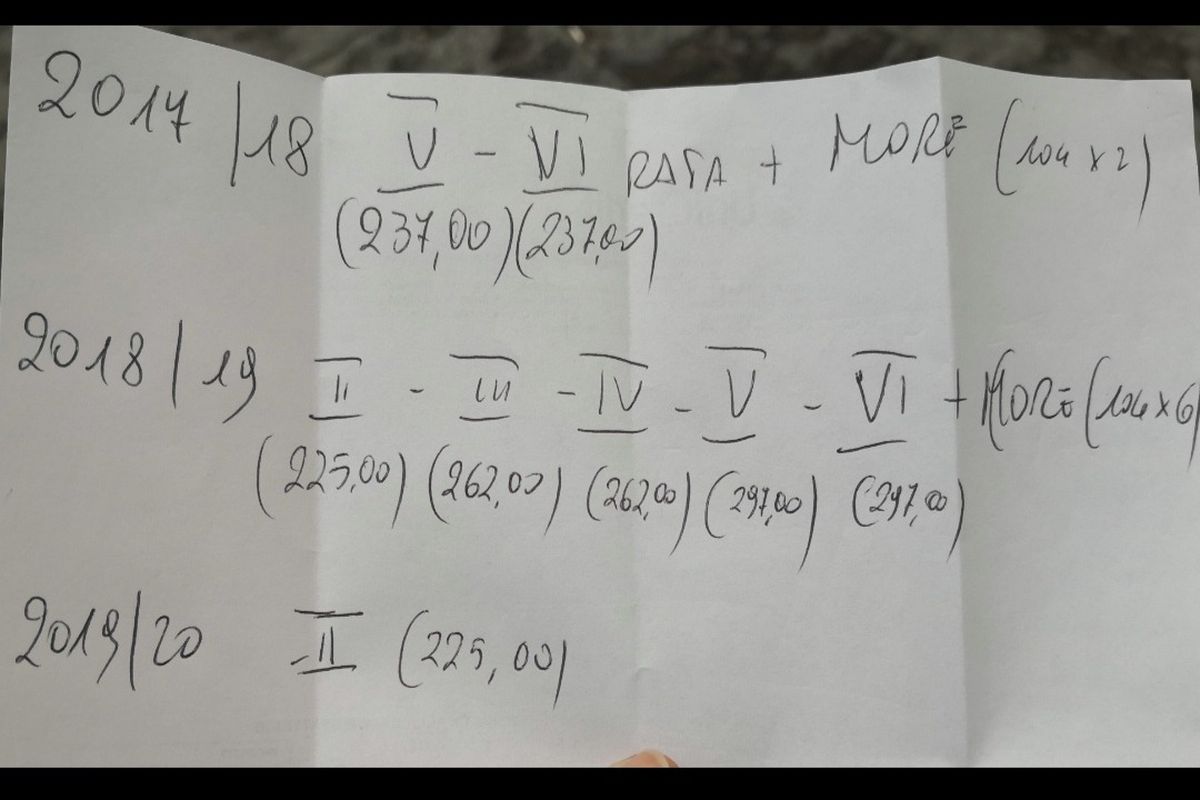 2017/18 V - VI RATA + MORE (104 x 2)
(237,00) (237,00)
2018/19 II - III - IV - V - VI + MORE (104 x 6)
(225,00) (262,00) (262,00) (297,00) (297,00)
2019/20 II (225,00)